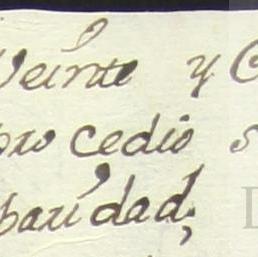 Veinte y C
pro cedio s
paridad;